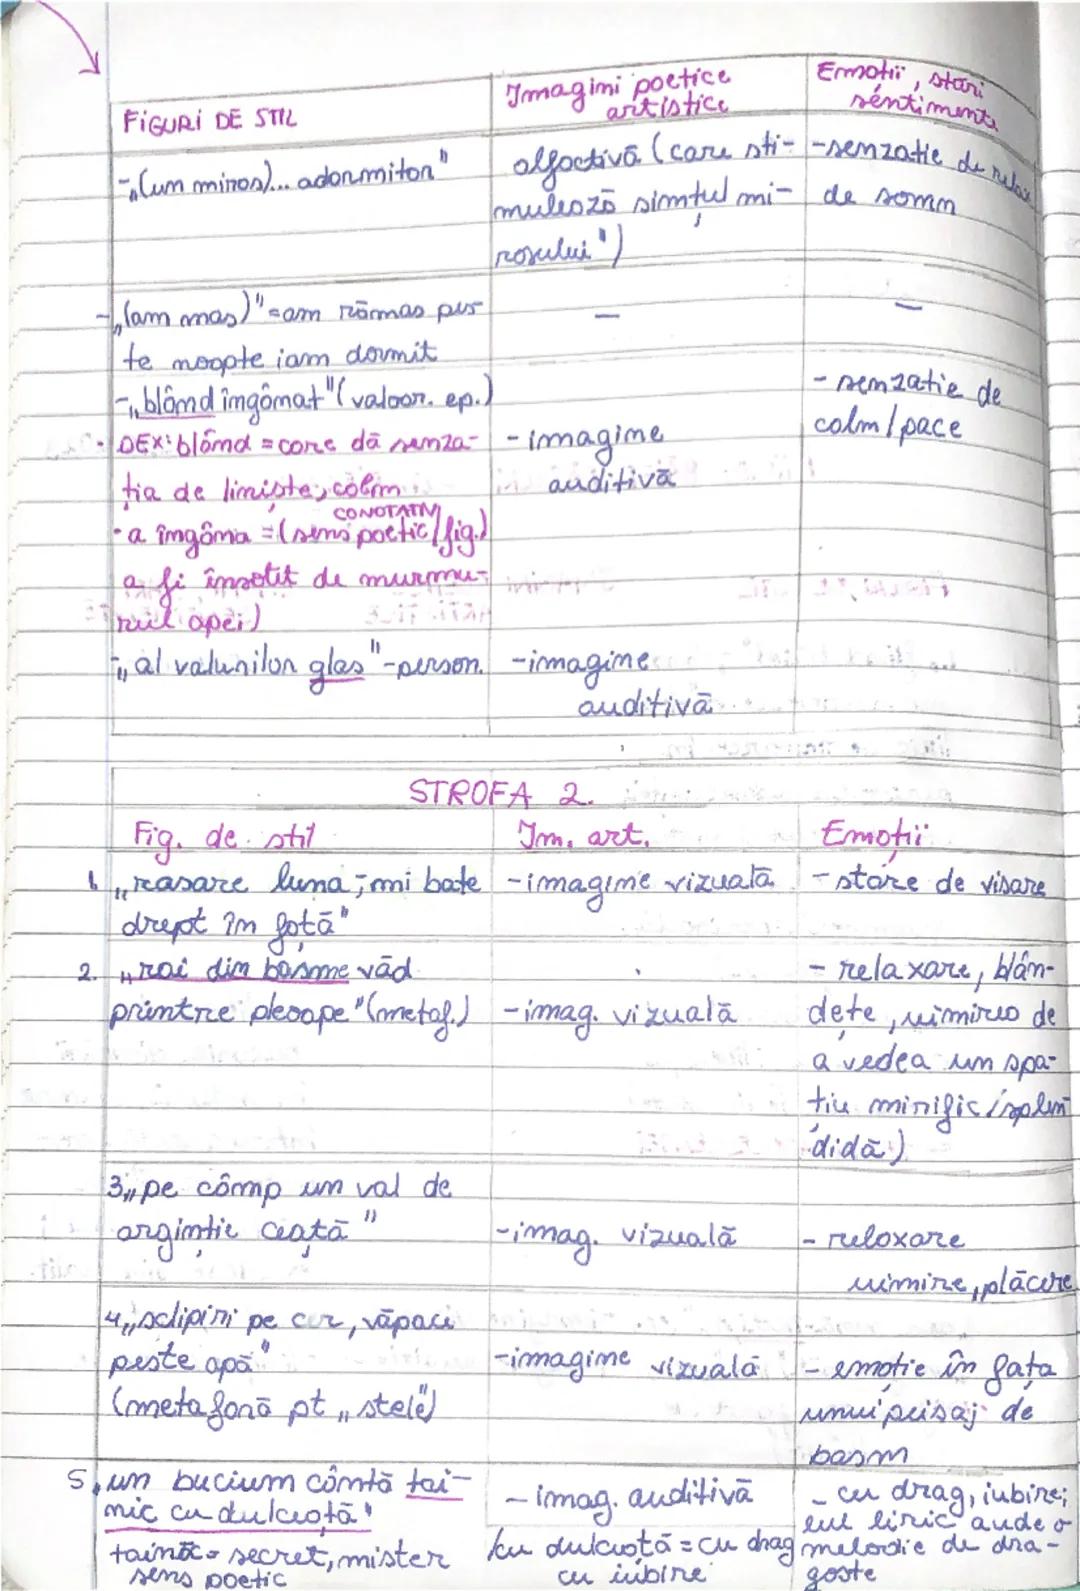 FIGURI DE STIL
Imagini poetice
artistice
Emoții, stări
sentimente
-„(un miros)... adormitor"
olfactivă (care sti-
mulează simțul mi-
rosului")
-senzatie de relax
de somn
-„(am mas)"=am rămas pes-
te noapte iam dormit
—
—
-„blând îngânat"(valoar. ep.)
• DEX: blând = care dă senza-
ția de liniște, calm
CONOTATIV
• a îngâna =(sens poetic/fig.)
a fi însoțit de murmu-
rul apei)
- imagine
auditivă
- senzatie de
calm/pace
-„al valurilor glas"-person.
-imagine
auditivă
STROFA 2.
Fig. de stil
Im. art.
Emoții
1. „rasare luna,-mi bate
drept în față"
-imagine vizuală
- stare de visare
2. „rai din basme văd
printre pleoape"(metaf.)
-imag. vizuală
- relaxare, blân-
dețe, uimirea de
a vedea un spa-
țiu mirific (splen
didă)
3„pe câmp un val de
argintie ceață"
-imag. vizuală
- relaxare
uimire, plăcere
4„sclipiri pe cer, văpaie
peste apă"
(metaforă pt „stele")
-imagine vizuală
- emoție în fața
unui peisaj de
basm
5„un bucium cântă tai-
nic cu dulceață"
taină= secret, mister
sens poetic
- imag. auditivă
/cu dulceață = cu drag
cu iubire
- cu drag, iubire;
eul liric aude o
melodie de dra-
goste